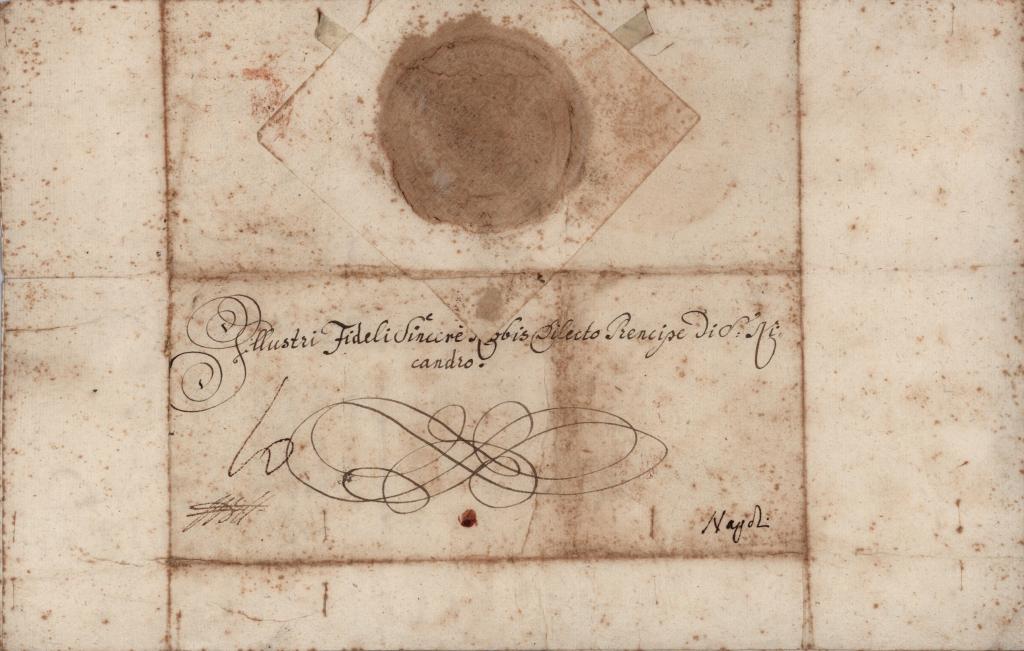 Illustri Fideli Sincerè Nobis Dilecto Prencipe Di S.ⁿ Ni:
candro.
Napoli